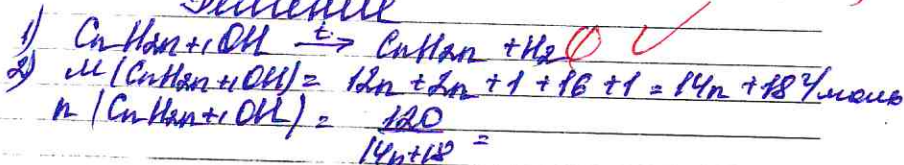 Решение
1) CnH2n+1OH t→ CnH2n + H2O
2) M(CnH2n+1OH) = 12n + 2n + 1 + 16 + 1 = 14n + 18 г/моль
n(CnH2n+1OH) = 120 / 14n+18 =